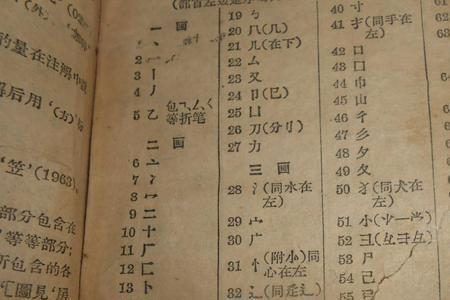 的量在注解中
后用‘(方)’
‘笠’(1963)，
部分包含在
等等部分；
包含的各
圖見‘房
一 画
1 一
3 丨
4 丿
5 乙 包乛𠃋く
等折笔
二 画
6 亠
7 冫
8 冖
9 二
10 十
11 厂
12 匚
13 卜
19 ㄅ
20 几(几)
21 儿(在下)
22 厶
23 又
24 卩(㔾)
25 凵
26 刀(分刂)
27 力
三 画
28 氵(同水在
左)
29 宀
30 广
31 忄(附小)同
心在左
32 辶(同辵辶)
40 寸
41 扌(同手在
左)
42 口
43 囗
44 巾
45 山
46 彳
47 彡
48 夕
49 夂
50 犭(同犬在
左)
51 小(⺌⺍)
52 彐(彑彐⺕)
53 尸
54 己
55
61
62
63